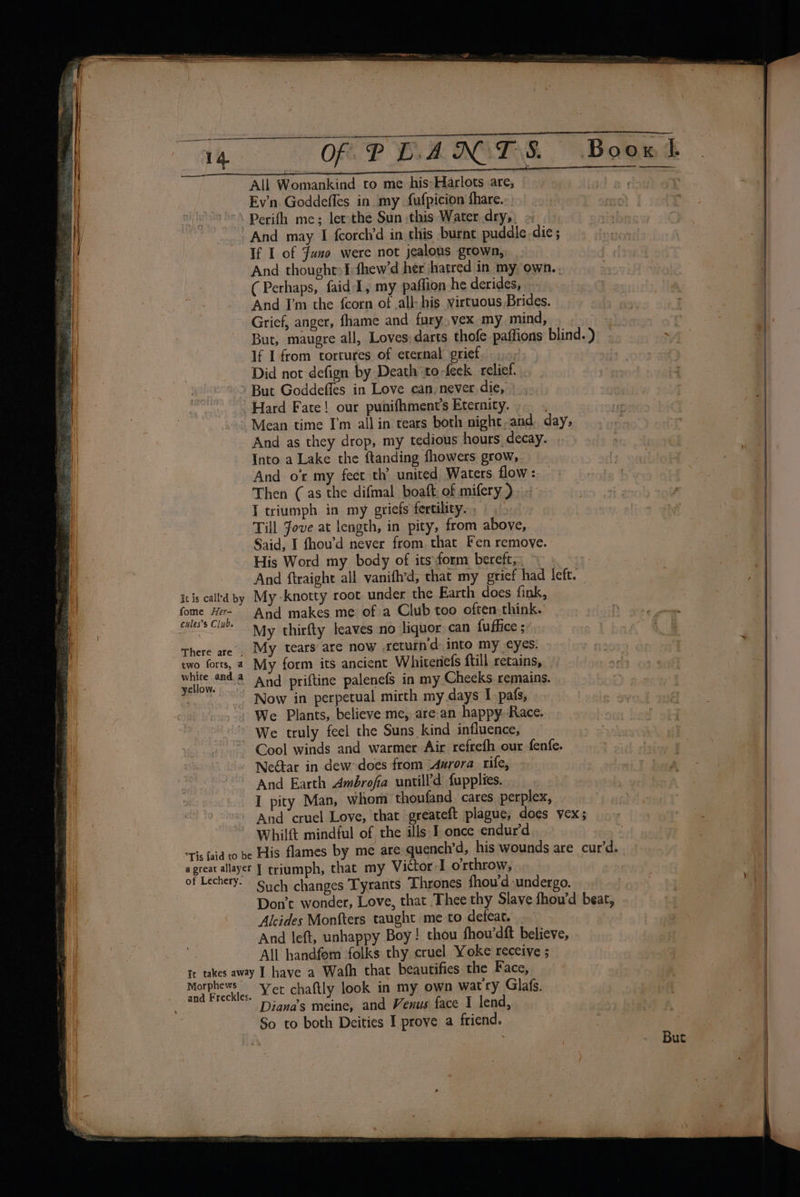 14 Of PLANTS. Book I.
All Womankind to me his Harlots are,
Ev'n Goddeſſes in my ſuſpicion ſhare.
Periſh me; let the Sun this Water dry,
And may I ſcorch'd in this burnt puddle die;
If I of Juno were not jealous grown,
And thought I ſhew'd her hatred in my own.
(Perhaps, ſaid I, my paſſion he derides,
And I'm the ſcorn of all his virtuous Brides.
Grief, anger, ſhame and fury vex my mind,
But, maugre all, Loves darts thoſe paſſions blind.)
If I from tortures of eternal grief
Did not deſign by Death to ſeek relief.
But Goddeſſes in Love can never die,
Hard Fate! our puniſhment's Eternity.
Mean time I'm all in tears both night and day,
And as they drop, my tedious hours decay.
Into a Lake the ſtanding ſhowers grow,
And o'r my feet th' united Waters flow:
Then (as the diſmal boaſt of miſery)
I triumph in my griefs fertility.
Till Jove at length, in pity, from above,
Said, I ſhou'd never from that Fen remove.
His Word my body of its form bereft,
And ſtraight all vaniſh'd, that my grief had left.
It is call'd by My knotty root under the Earth does ſink,
ſome Her- And makes me of a Club too often think.
cules's Club. My thirſty leaves no liquor can ſuffice;
There are My tears are now return'd into my eyes.
two ſorts, a My form its ancient Whiteneſs ſtill retains,
white and a And priſtine paleneſs in my Cheeks remains.
yellow. Now in perpetual mirth my days I paſs,
We Plants, believe me, are an happy Race.
We truly feel the Suns kind influence,
Cool winds and warmer Air refreſh our ſenſe.
Nectar in dew does from Aurora riſe,
And Earth Ambroſia untill'd ſupplies.
I pity Man, whom thouſand cares perplex,
And cruel Love, that greateſt plague, does vex;
Whilſt mindful of the ills I once endur'd
'Tis ſaid to be His flames by me are quench'd, his wounds are cur'd.
a great allayer I triumph, that my Victor I o'rthrow,
of Lechery. Such changes Tyrants Thrones ſhou'd undergo.
Don't wonder, Love, that Thee thy Slave ſhou'd beat,
Alcides Monſters taught me to defeat.
And left, unhappy Boy! thou ſhou'dſt believe,
All handſom folks thy cruel Yoke receive;
It takes away I have a Waſh that beautifies the Face,
Morphews Yet chaſtly look in my own wat'ry Glaſs.
and Freckles. Diana's meine, and Venus face I lend,
So to both Deities I prove a friend.
But